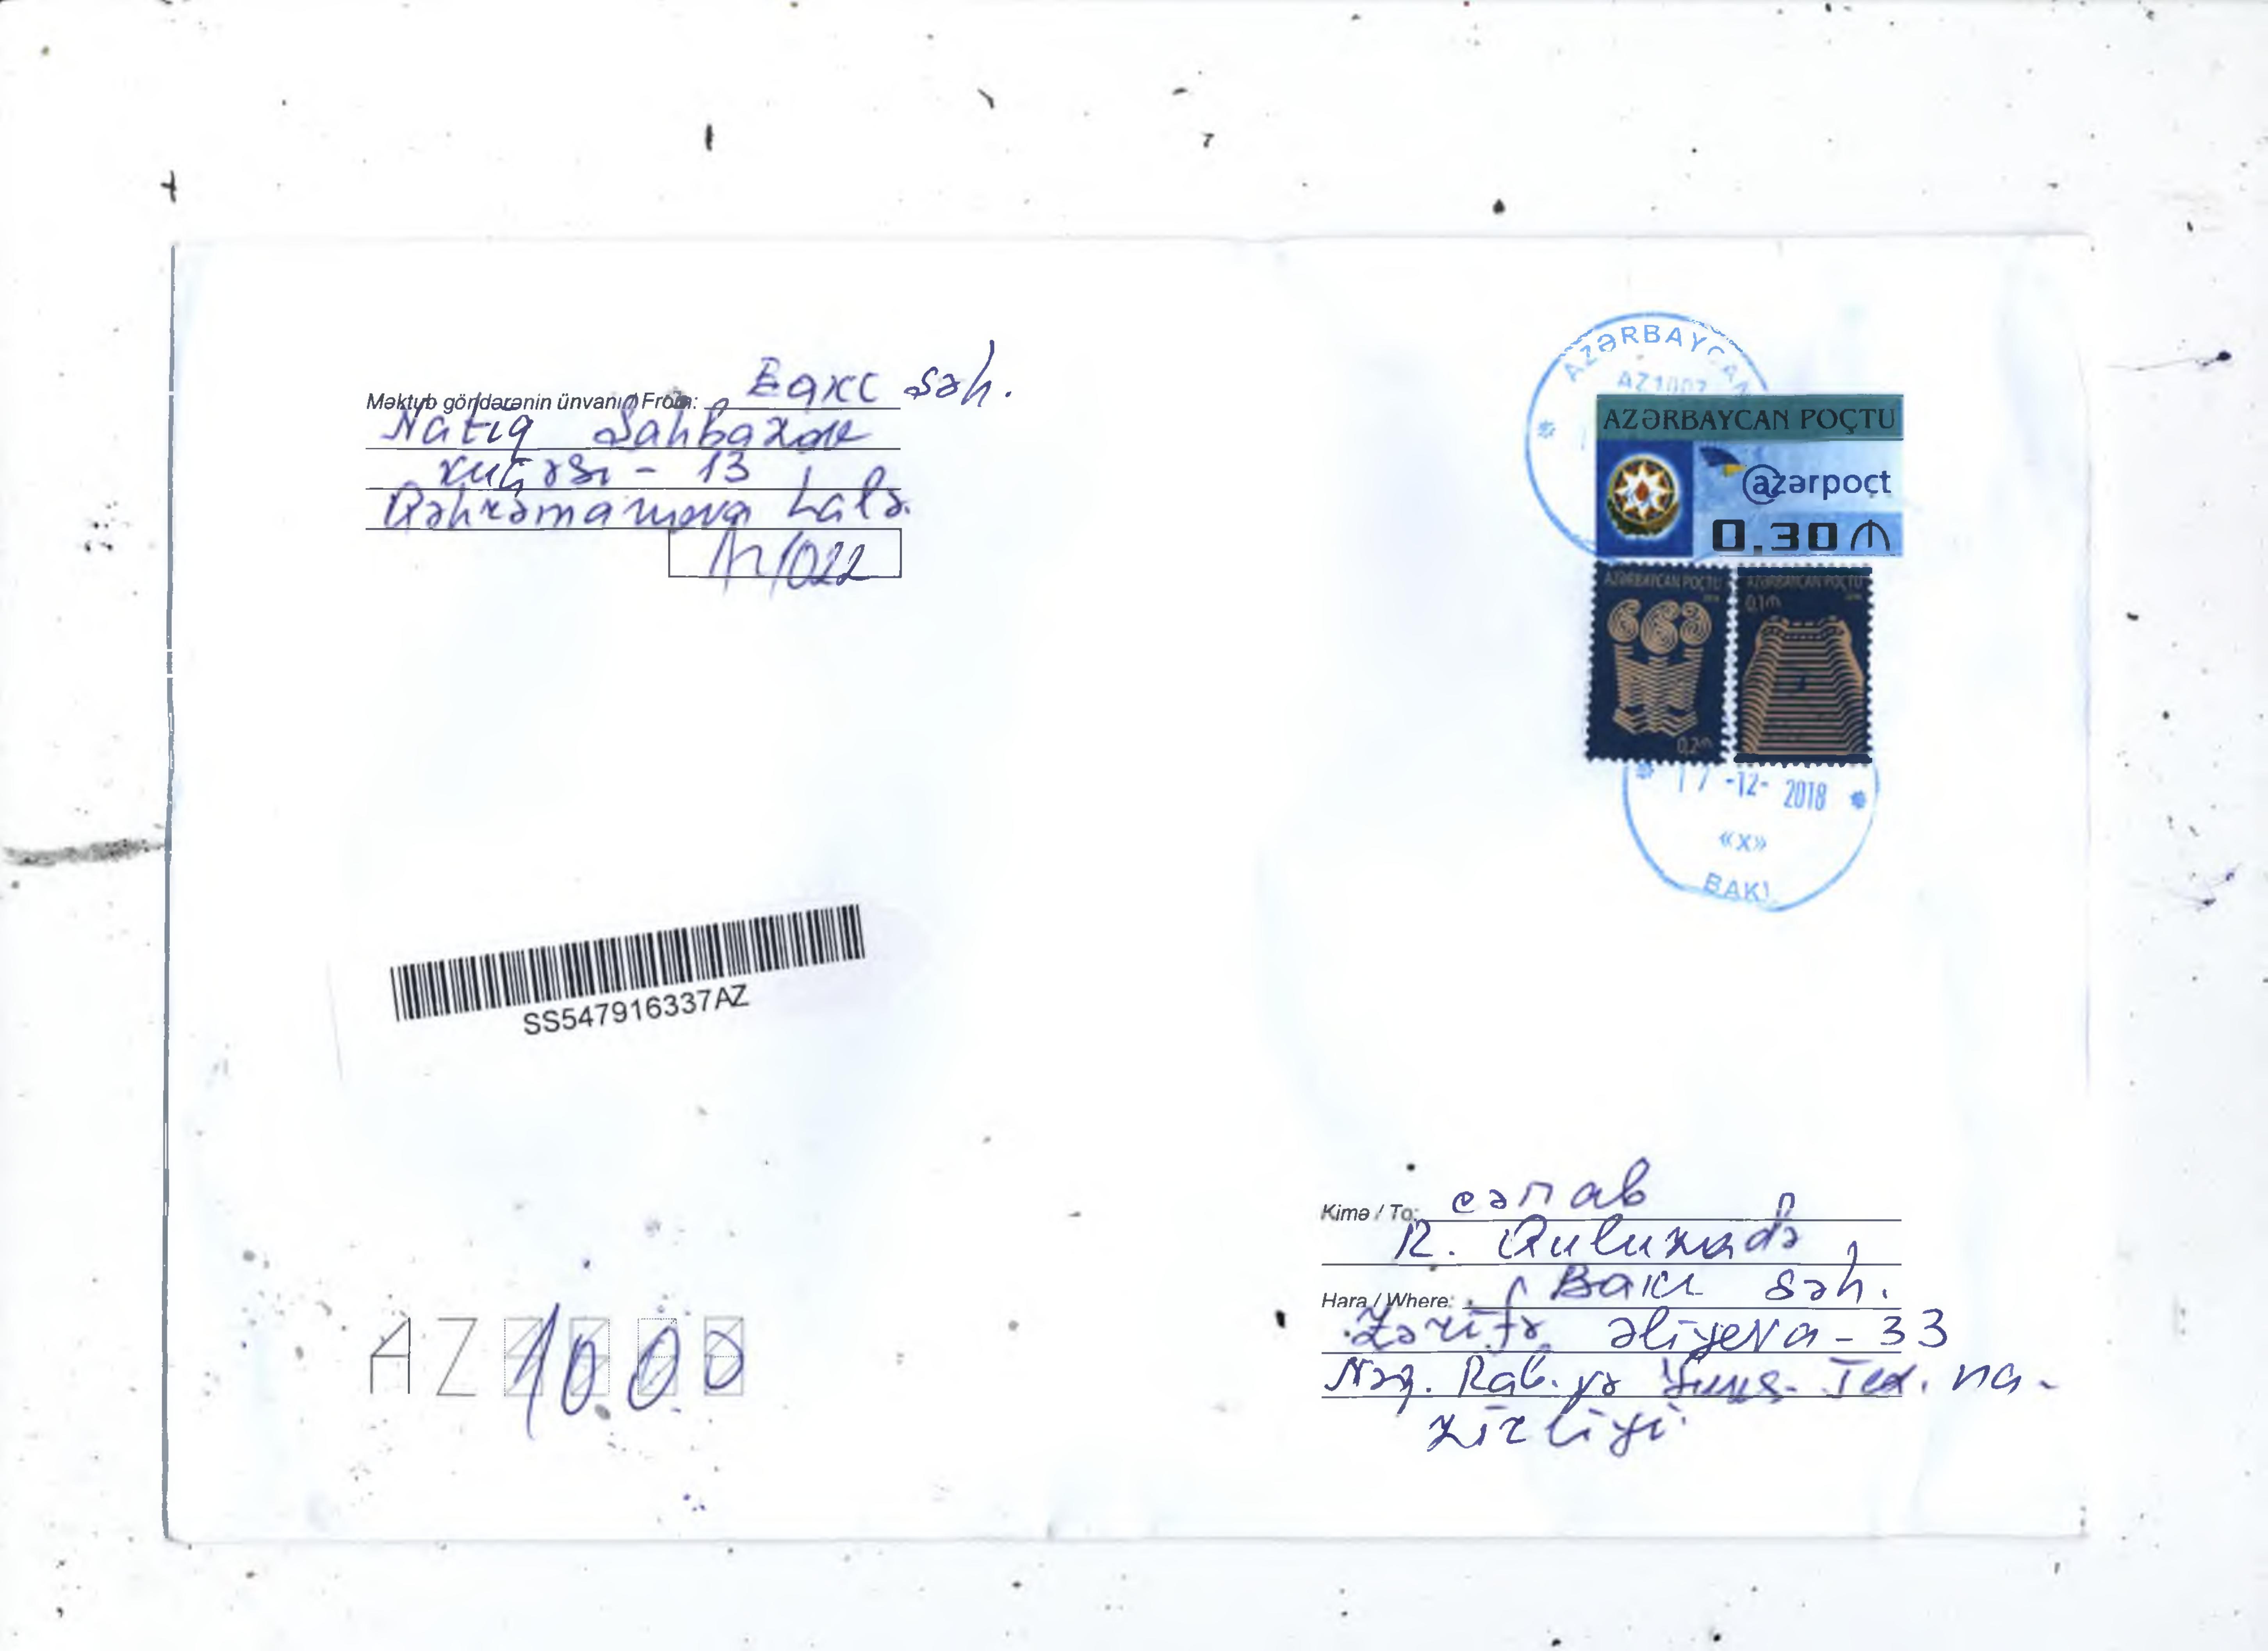 Məktub göndərənin ünvanı / From: Bakı şəh.
Natiq Şahbazov
küçəsi - 13
Qəhrəmanova Lalə.
1022
AZƏRBAYCAN
AZ1002
AZƏRBAYCAN POÇTU
@azərpoçt
0,30 ₼
AZƏRBAYCAN POÇTU
0,2₼
AZƏRBAYCAN POÇTU
0,1₼
17 -12- 2018
«X»
BAKI
SS547916337AZ
Kimə / To: cənab
R. Quluzadə
Hara / Where: Bakı şəh.
Zərifə Əliyeva - 33
Nəq. Rab. və Yüks. Tex. na-
zirliyi
AZ 1000